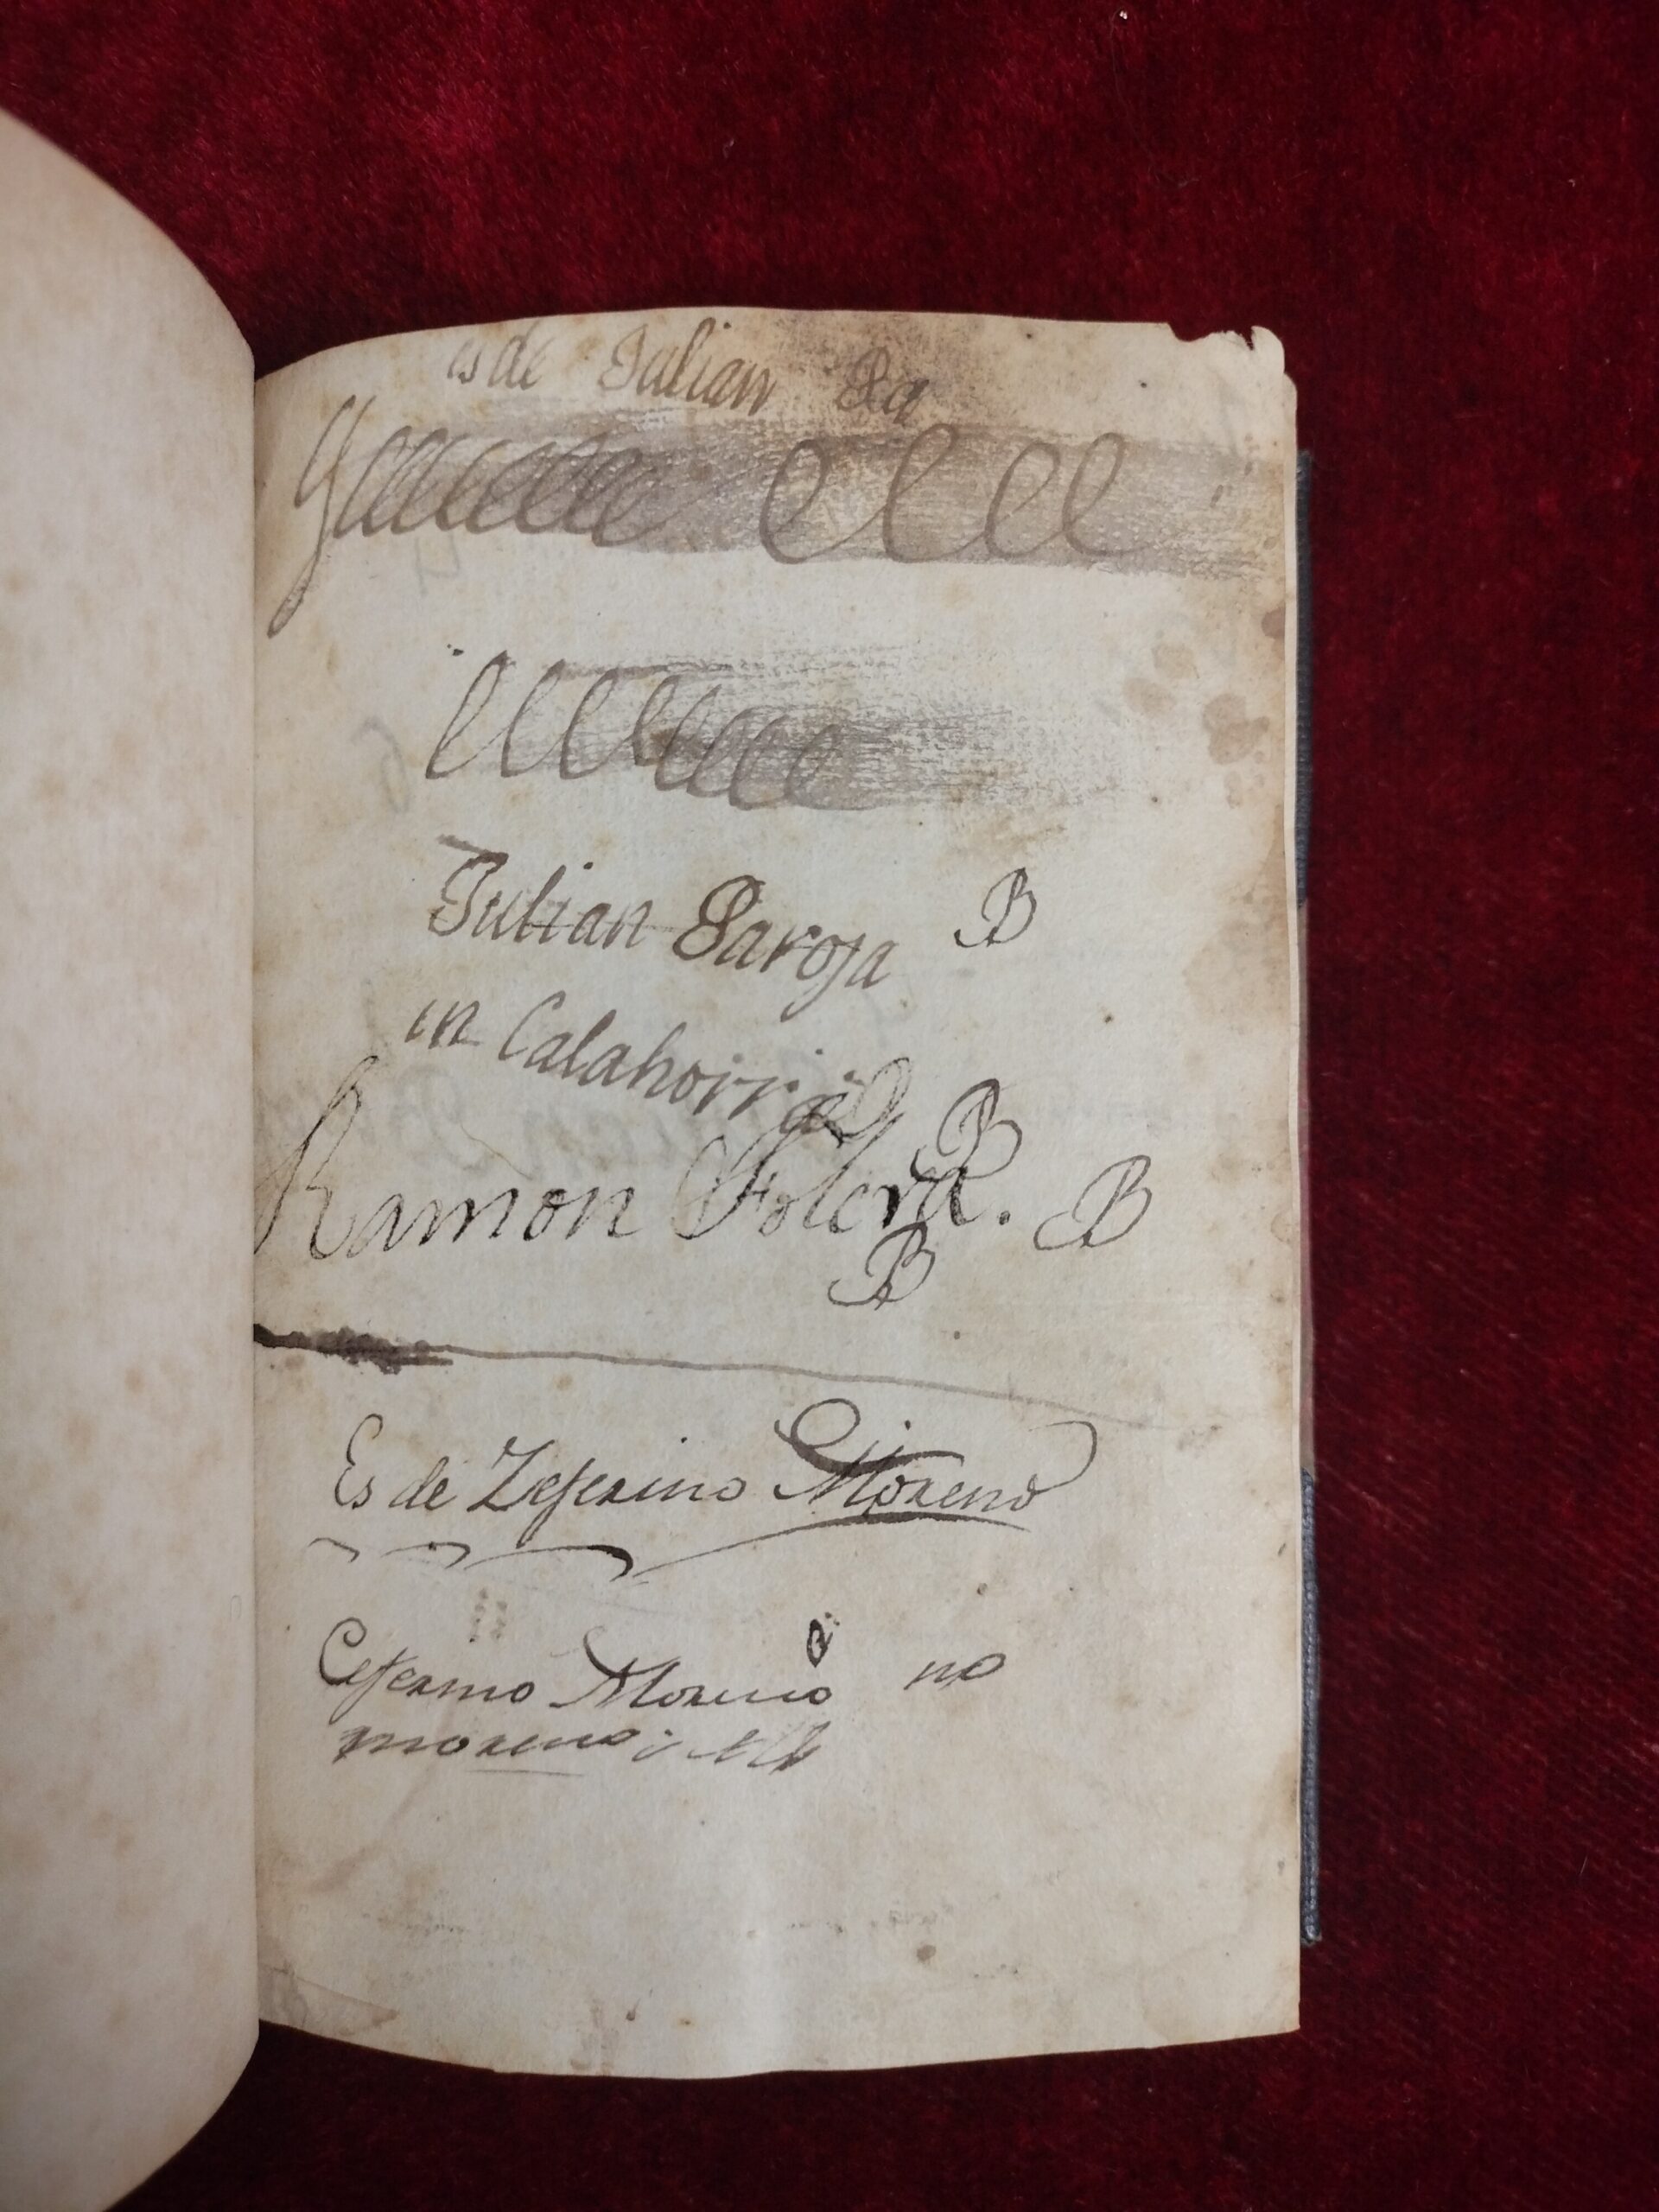 es de Julian Ba
Julian Baroja B
en Calahorra
B
Ramon B
B
Es de Zeferino Moreno
Ceferino Moreno no
moreno